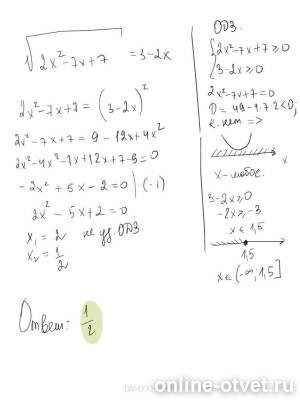 √2x²-7x+7 = 3-2x
2x²-7x+7 = (3-2x)²
2x²-7x+7 = 9-12x+4x²
2x²-4x²-7x+12x+7-9=0
-2x²+5x-2=0 | (-1)
2x²-5x+2=0
x₁=2 не уд. ОДЗ.
x₂=1/2
Ответ: 1/2
ОДЗ.
{2x²-7x+7≥0
3-2x≥0
2x²-7x+7=0
D=49-4·7·2<0,
к. нет =>
x
x-любое.
3-2x≥0
-2x≥-3
x≤1,5
1,5
x∈(-∞,1,5]
online-otvet.ru